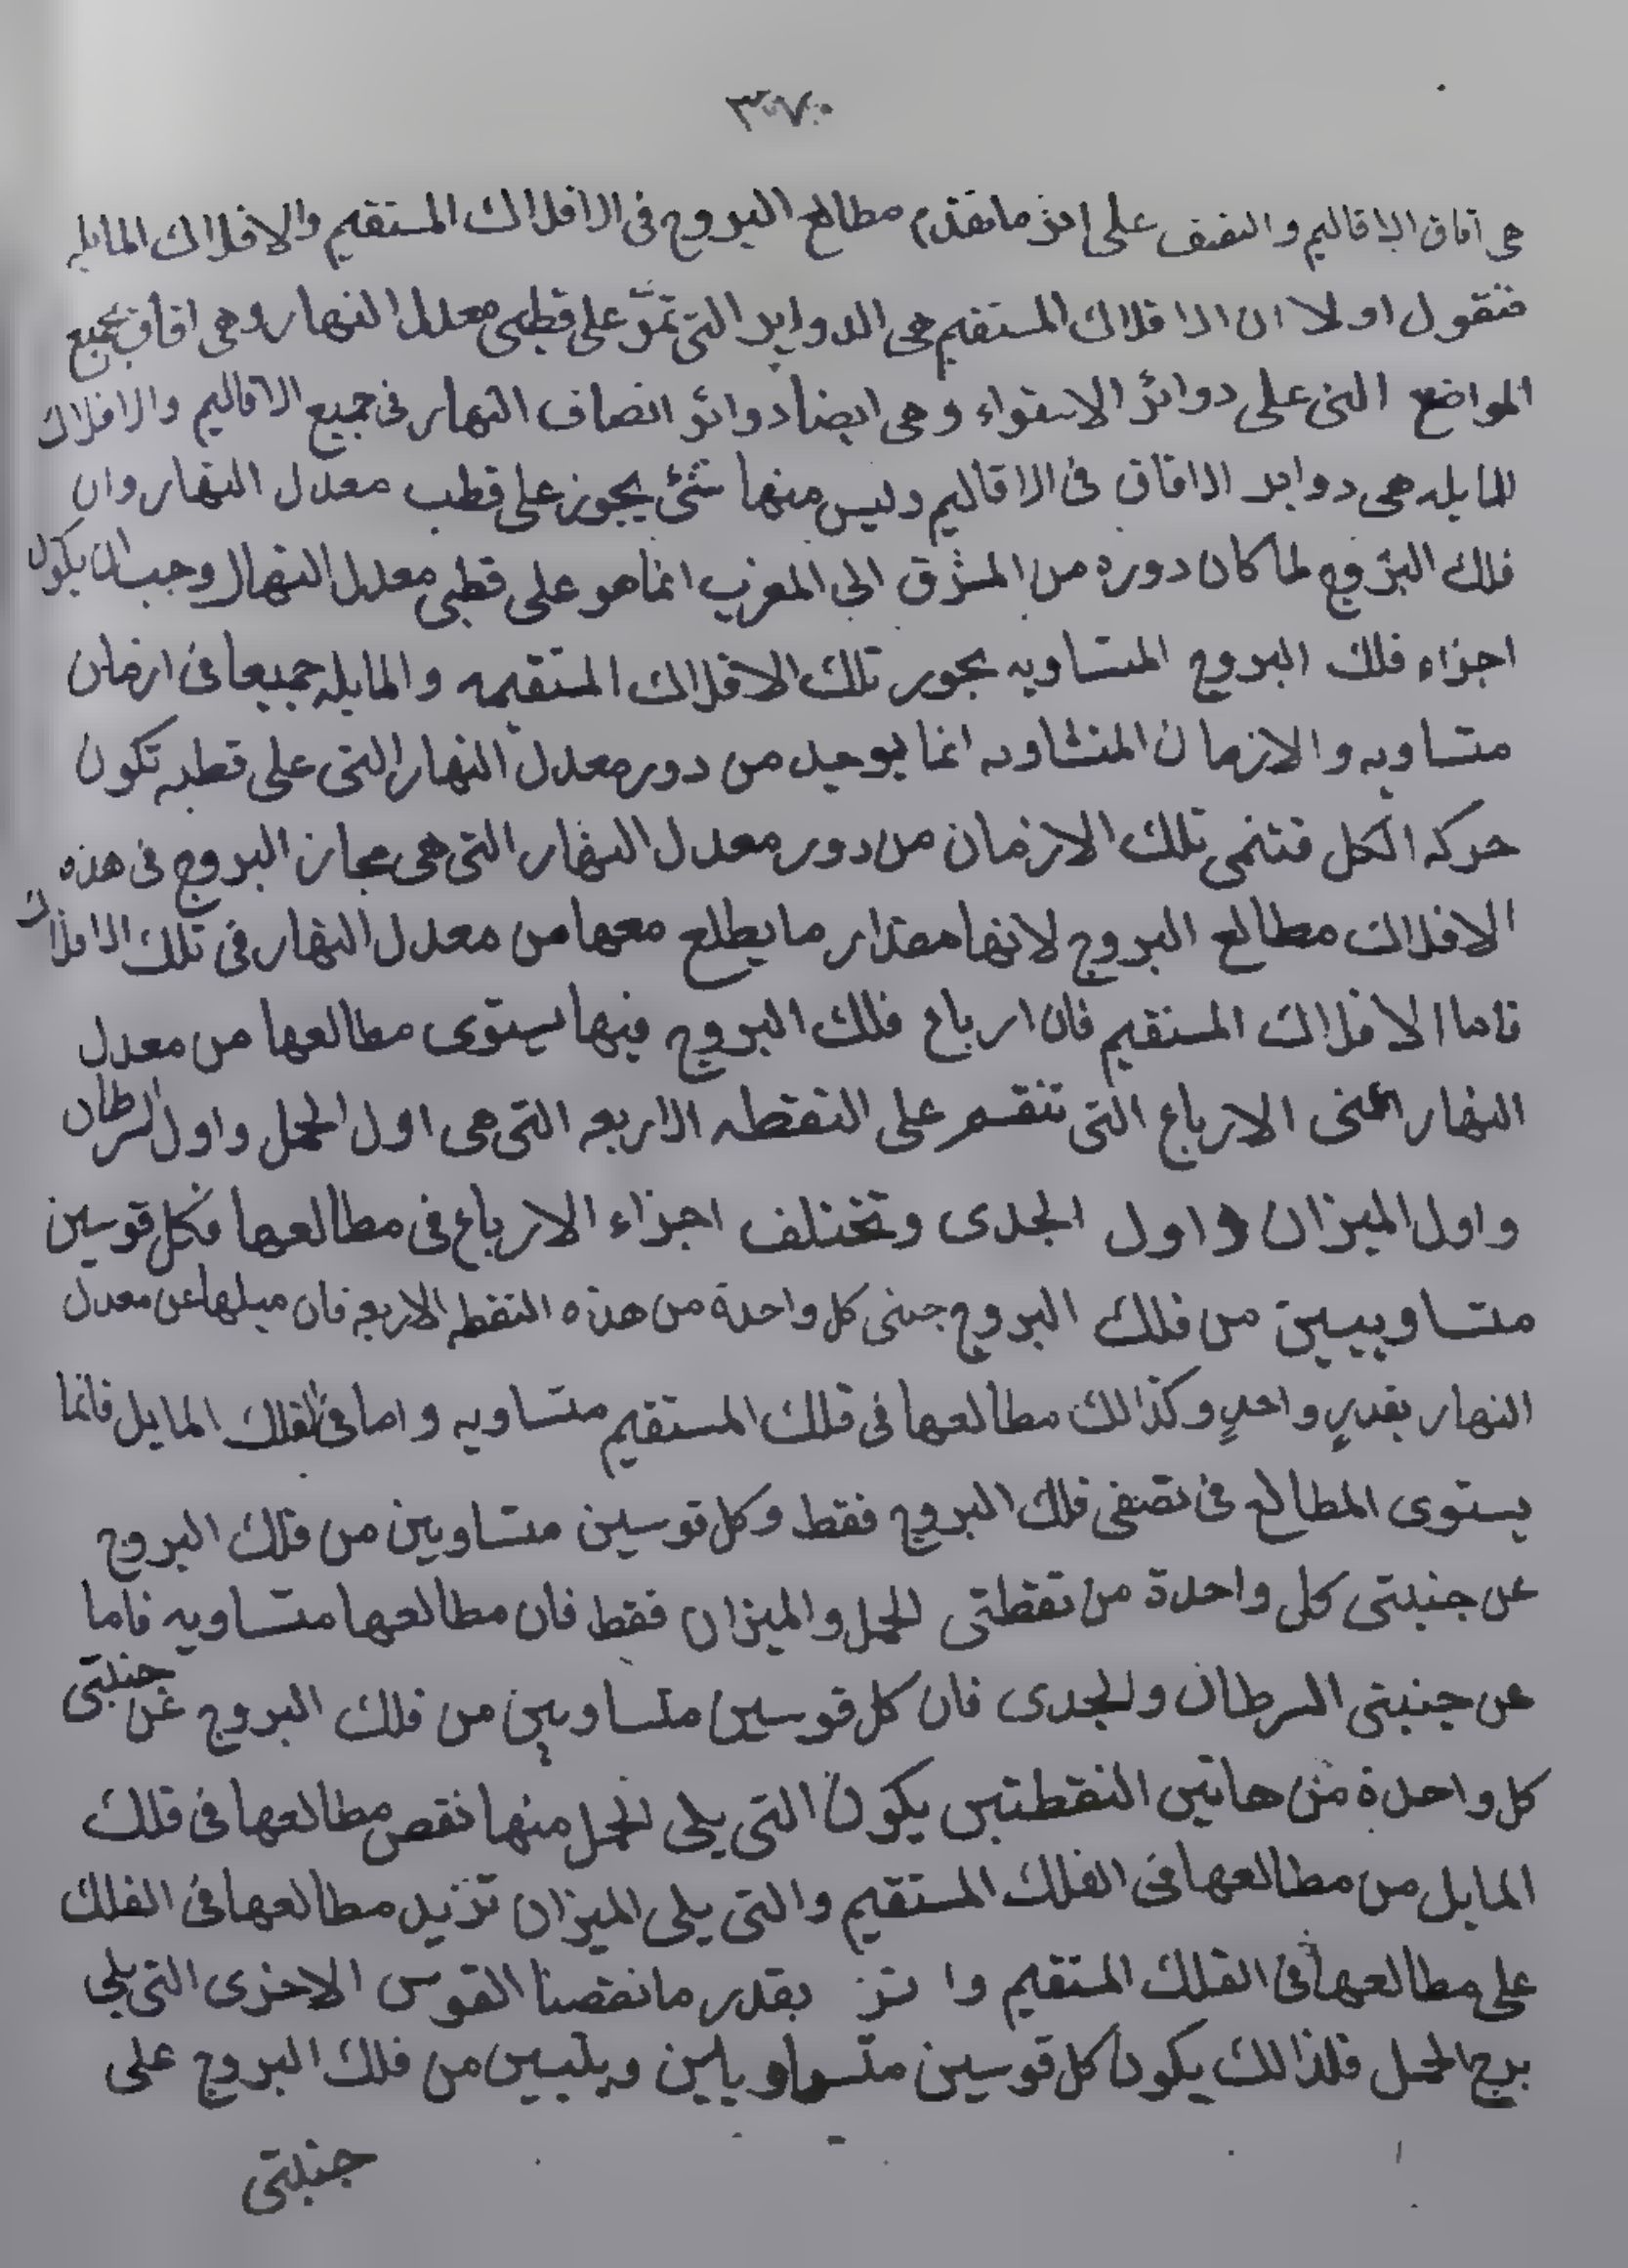 ٣٠٧٠
هى آفاق الاقاليم و النقف على اثر ما تقدم مطالع البروج فى الافلاك المستقيم والافلاك المايله
فنقول اولا ان الافلاك المستقيم هى الدواير التى تمرّ على قطبى معدل النهار وهى افاق جميع
المواضع التى على دوائر الاستواء وهى ايضا دوائر انصاف النهار فى جميع الاقاليم والافلاك
المايله هى دواير الافاق فى الاقاليم وليس منها شئ يجوز على قطب معدل النهار وان
فلك البروج لما كان دوره من المشرق الى المغرب انما هو على قطبى معدل النهار وجب ان يكون
اجزاء فلك البروج المتساويه بجور تلك الافلاك المستقيمه والمايله جميعا فى ازمان
متساويه والازمان المتشاويه انما يوجد من دور معدل النهار التى على قطبه تكون
حركه الكل فتنمى تلك الازمان من دور معدل النهار التى هى مجاز البروج فى هذه
الافلاك مطالع البروج لانها مقدار ما يطلع معها من معدل النهار فى تلك الافلاك
فاما الافلاك المستقيم فان ارباع فلك البروج فيها يستوى مطالعها من معدل
النهار اعنى الارباع التى تنقسم على النقطه الاربعه التى هى اول الحمل واول السرطان
واول الميزان واول الجدى وتختلف اجزاء الارباع فى مطالعها فكل قوسين
متساويين من فلك البروج جنبى كل واحدة من هذه النقطه الاربعه فان ميلها عن معدل
النهار بقدرٍ واحدٍ وكذالك مطالعها فى فلك المستقيم متساويه واما فى الفلك المايل فانما
يستوى المطالع فى نصفى فلك البروج فقط وكل قوسين متساوين من فلك البروج
عن جنبتى كل واحدة من نقطتى الحمل والميزان فقط فان مطالعها متساويه فاما
عن جنبتى السرطان والجدى فان كل قوسين متساويين من فلك البروج عن جنبتى
كل واحدة من هاتين النقطتين يكون التى يلى الحمل منها نقص مطالعها فى فلك
المايل من مطالعها فى الفلك المستقيم والتى يلى الميزان تزيد مطالعها فى الفلك
على مطالعها فى الفلك المستقيم بقدر ما نقصنا القوس الاخرى التى يلى
برج الحمل فلذالك يكون كل قوسين من فلك البروج على
جنبتى